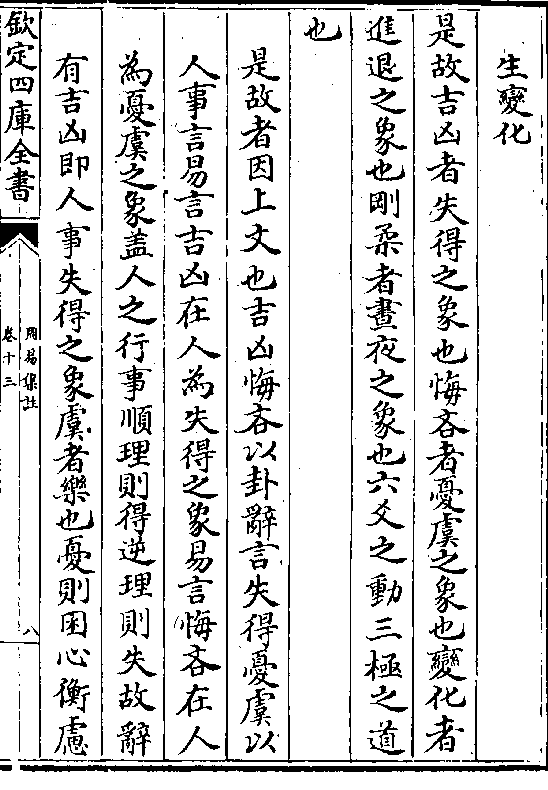 生變化
是故吉凶者失得之象也悔吝者憂虞之象也變化者
進退之象也剛柔者晝夜之象也六爻之動三極之道
也
是故者因上文也吉凶悔吝以卦辭言失得憂虞以
人事言易言吉凶在人為失得之象易言悔吝在人
為憂虞之象盖人之行事順理則得逆理則失故辭
有吉凶即人事失得之象虞者樂也憂則困心衡慮
欽定四庫全書
周易集註
卷十三
八